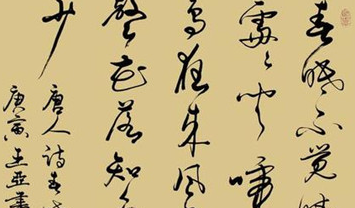 春眠不覺
處處聞啼
鳥夜来風
聲花落知多
少
唐人詩春
庚寅王亞